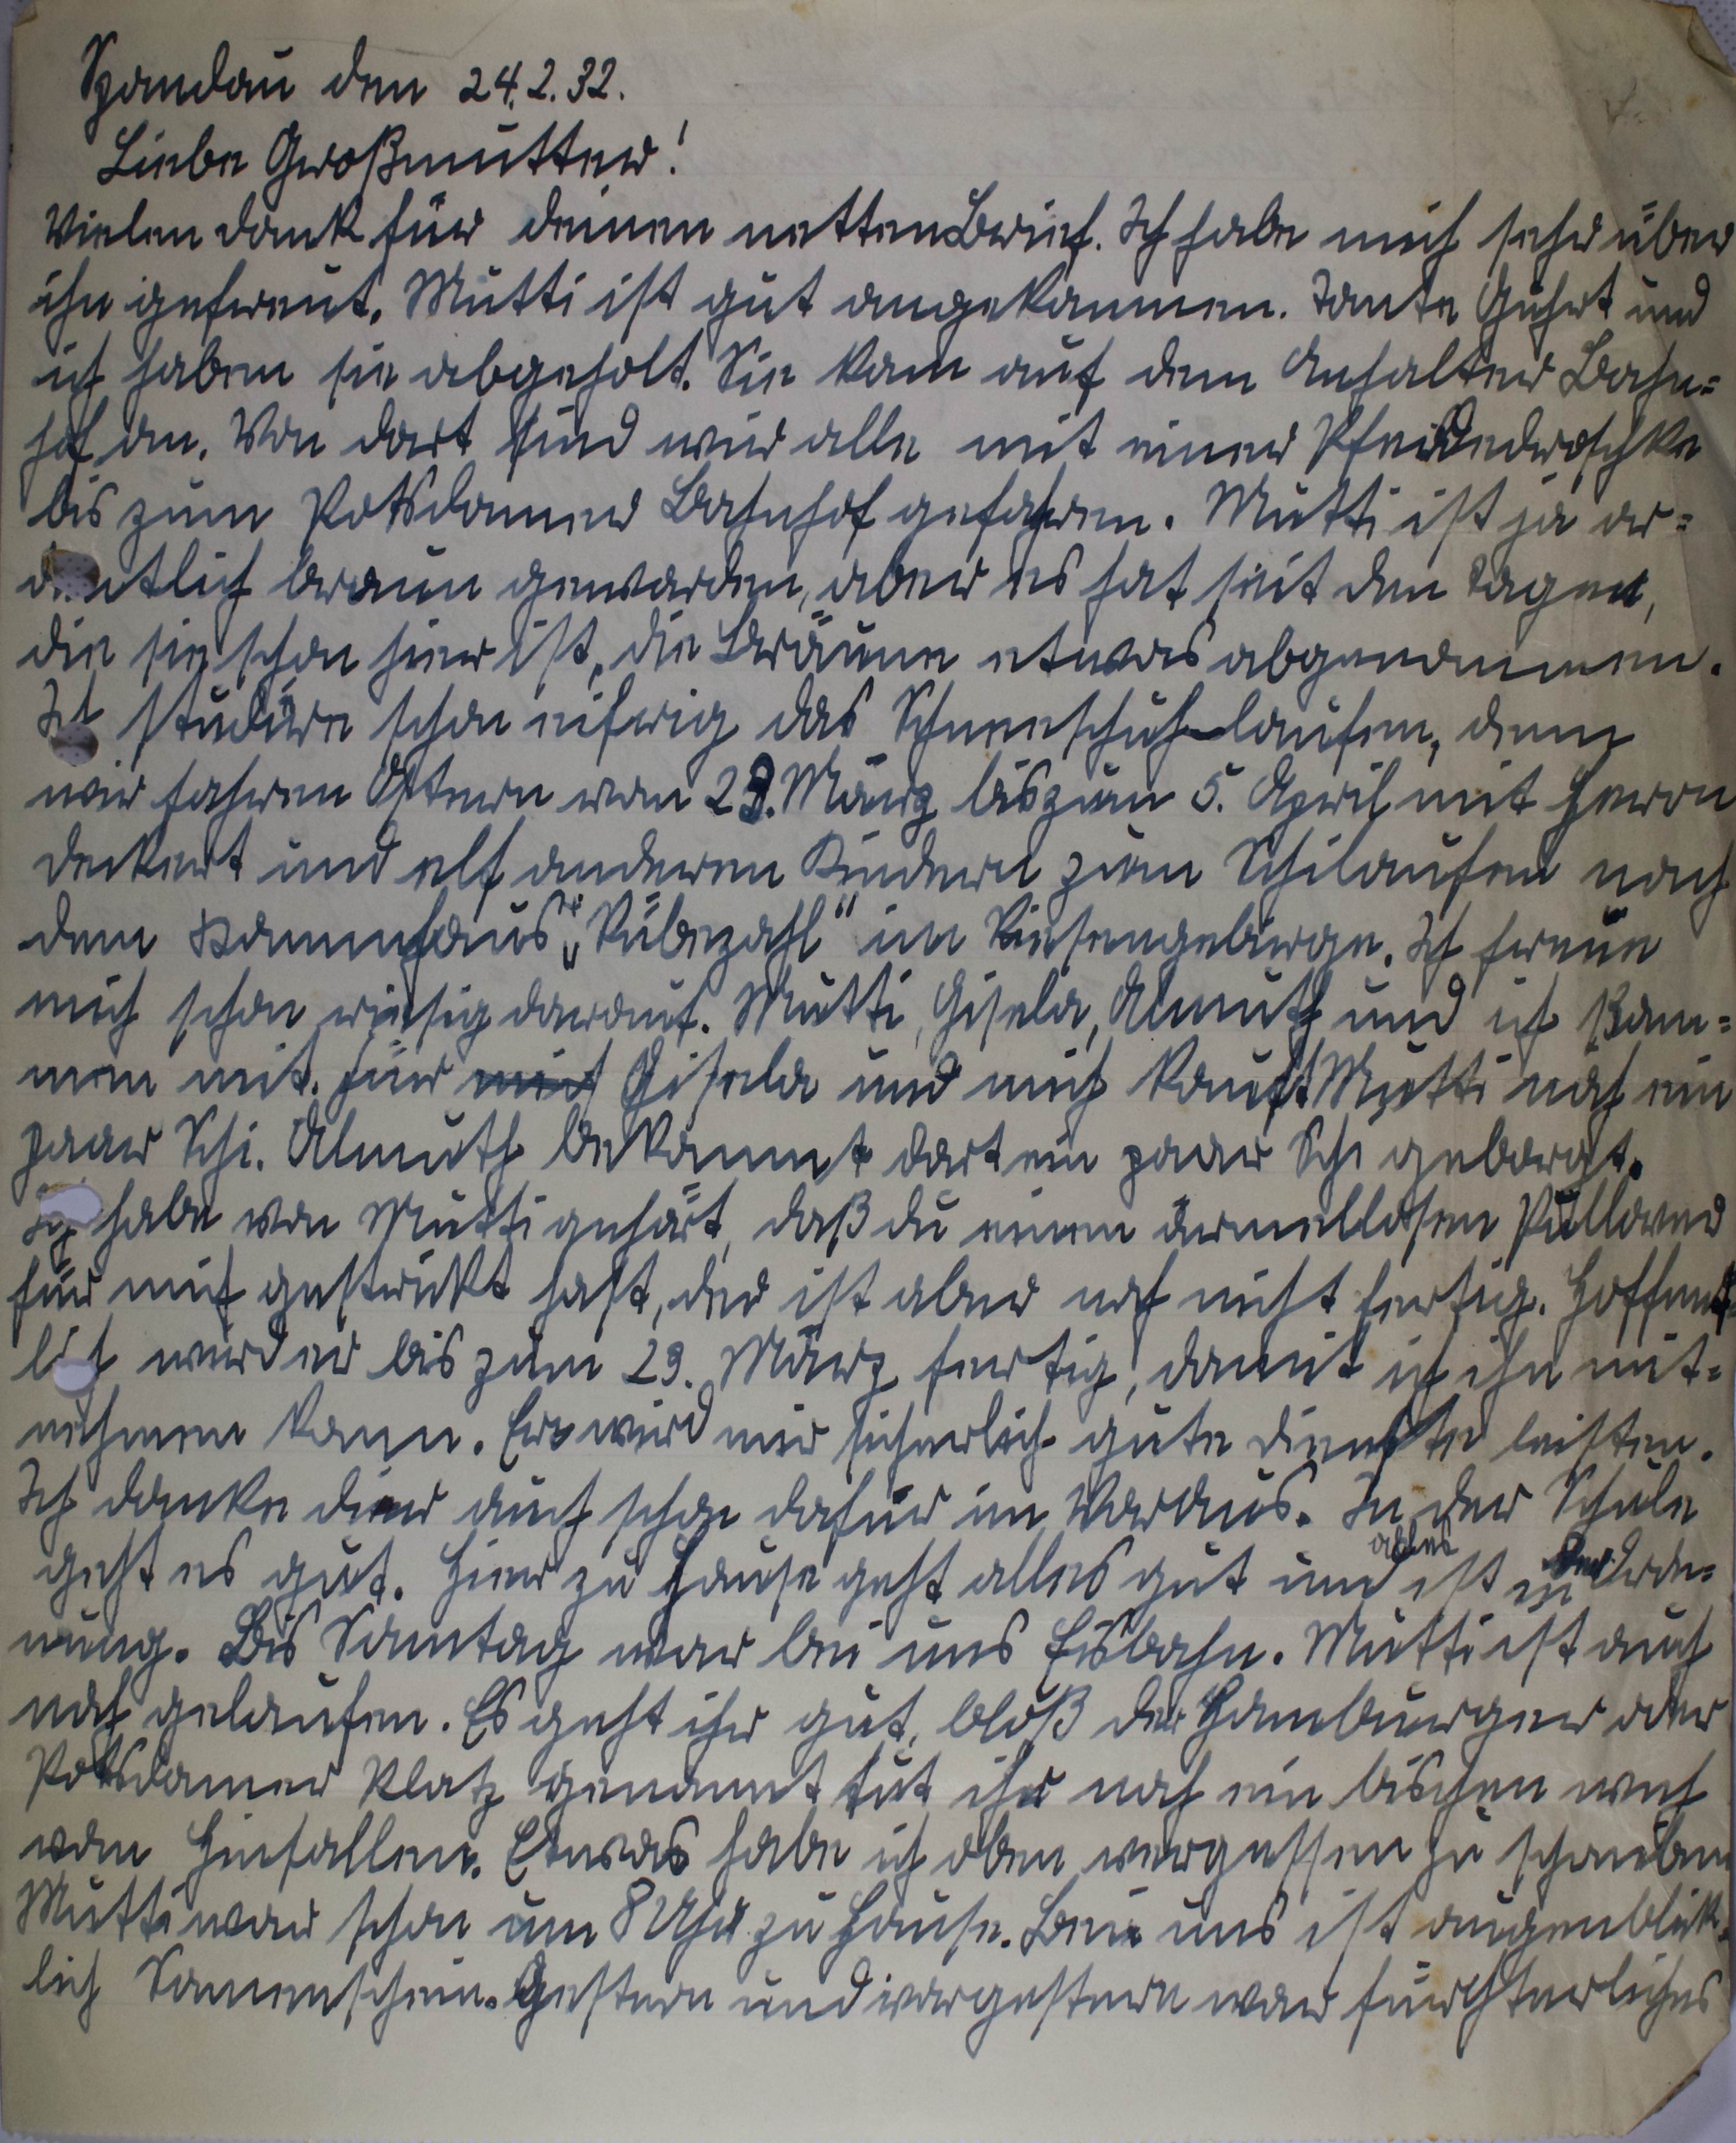 Spandau den 24.2.32.
Liebe Großmutter!
Vielen dank für deinen netten Brief. Ich habe mich sehr über
ihn gefreut. Mutti ist gut angekommen. Tante und
ich haben sie abgeholt. Sie kam auf dem Anhalter Bahn=
hof an. Von dort sind wir alle mit einer Pferdedroschke
bis zum Potsdamer Bahnhof gefahren. Mutti ist ja or=
dentlich braun geworden, aber es hat seit den Tagen,
die sie schon hier ist, die Bräune etwas abgenommen.
Ich studiere schon eifrig das Schneeschuh-laufen, denn
wir fahren Ostern von 23. März bis zum 5. April mit Herrn
Deckert und elf anderen Kindern zum Schilaufen nach
dem Kammhaus „Rübezahl" im Riesengebirge. Ich freue
mich schon riesig darauf. Mutti, Gisela, Almuth und ich kom=
men mit. Für mich Gisela und mich kauft Mutti noch ein
paar Schi. Almuth bekommt dort ein paar Schi geborgt.
Ich habe von Mutti gehört, daß du einen ärmellosen Pullover
für mich gestrickt hast, der ist aber noch nicht fertig. Hoffent=
lich wird er bis zum 23. März fertig, damit ich ihn mit=
nehmen kann. Er wird mir sicherlich gute dienste leisten.
Ich danke dir auch schon dafür im Voraus. In der Schule
geht es gut. Hier zu Hause geht alles gut und alles ist in Ord=
nung. Bis Sonntag war bei uns Eisbahn. Mutti ist auch
noch gelaufen. Es geht ihr gut, bloß der Hamburger oder
Potsdamer Platz genannt tut ihr noch ein bischen weh
vom Hinfallen. Etwas habe ich oben vergessen zu schreiben
Mutti war schon um 8 Uhr zu Hause. Bei uns ist augenblick=
lich Sonnenschein. Gestern und vorgestern war fürchterliches